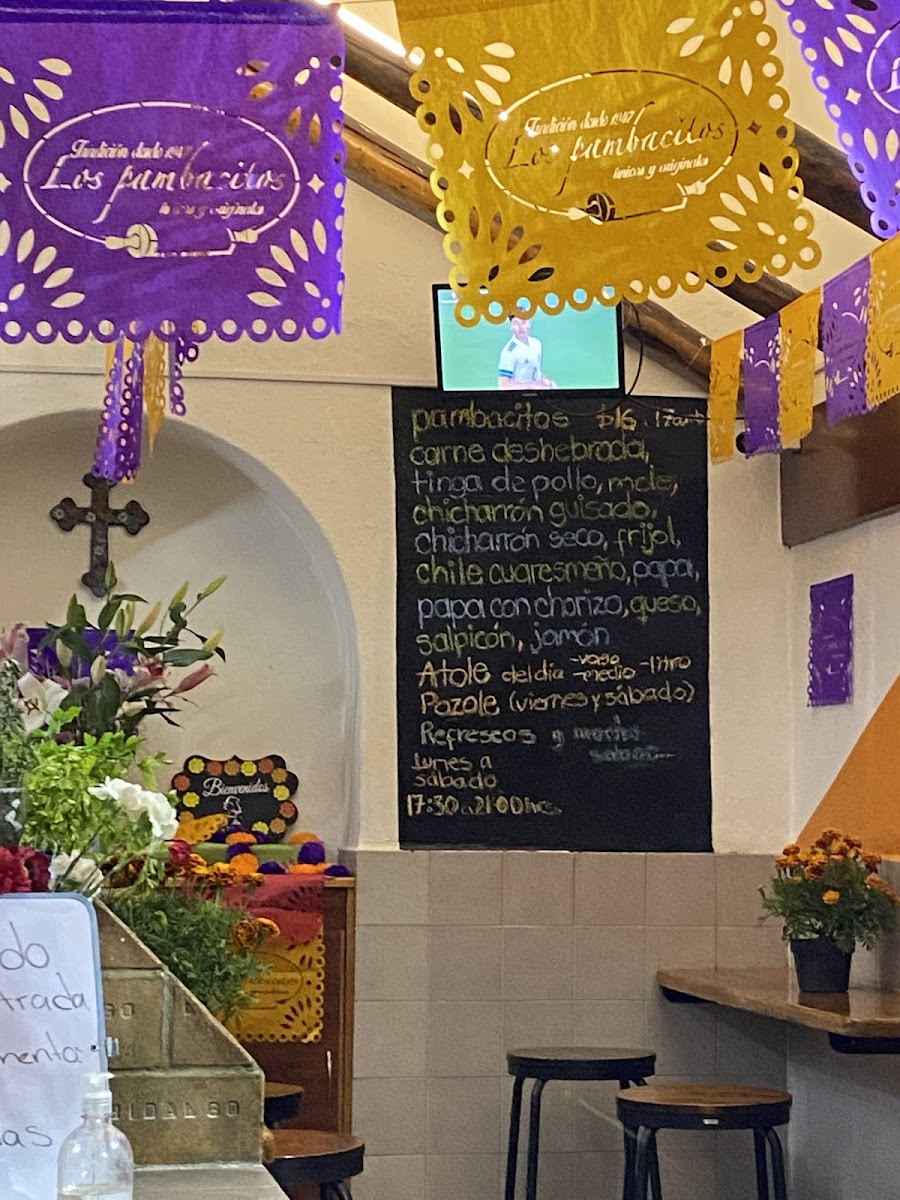 Tradición desde 1947
Los pambacitos
únicos y originales
Tradición desde 1947
Los pambacitos
únicos y originales
L
pambacitos $16
carne deshebrada,
tinga de pollo, mole,
chicharrón guisado,
chicharrón seco, frijol,
chile cuaresmeño, papa,
papa con chorizo, queso,
salpicón, jamón
Atole del día -vaso -medio -litro
Pozole (viernes y sábado)
Refrescos y mucho
sabor...
Lunes a
sábado
17:30 a 21:00 hrs.
Bienvenidos
do
trada
menta:
as